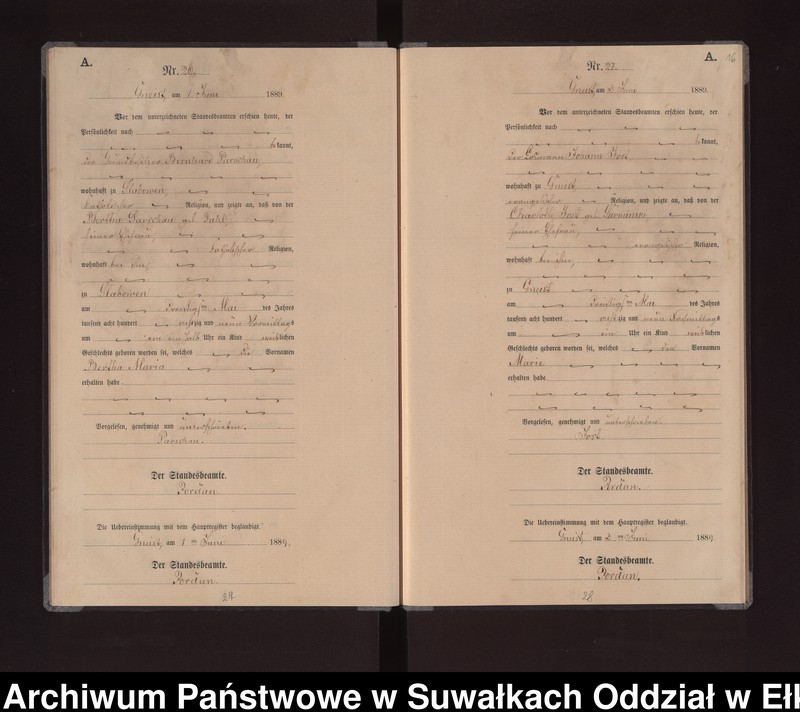 A.
Nr. 26.
Gneist, am 1 Juni 1889.
Vor dem unterzeichneten Standesbeamten erschien heute, der
Persönlichkeit nach
bekannt,
der Bernhard Parschau,
wohnhaft zu Glabowen,
katholischer Religion, und zeigte an, daß von der
Bertha Parschau geb.
seiner Ehefrau,
katholischer Religion,
wohnhaft bei ihm,
zu Glabowen
am Mai des Jahres
tausend acht hundert achtzig und neun Vormittags
um ein halb Uhr ein Kind weiblichen
Geschlechts geboren worden sei, welches die Vornamen
Bertha Maria
erhalten habe.
Vorgelesen, genehmigt und unterschrieben.
Parschau.
Der Standesbeamte.
Pordun.
Die Uebereinstimmung mit dem Hauptregister beglaubigt.
Gneist, am 1 ten Juni 1889.
Der Standesbeamte.
Pordun.
A. 16
Nr. 27.
Gneist, am 2 Juni 1889.
Vor dem unterzeichneten Standesbeamten erschien heute, der
Persönlichkeit nach
bekannt,
der Johann Jost
wohnhaft zu Gneist,
evangelischer Religion, und zeigte an, daß von der
Charlotte Jost geb.
seiner Ehefrau,
evangelischer Religion,
wohnhaft bei ihm,
zu Gneist
am Mai des Jahres
tausend acht hundert achtzig und neun Nachmittags
um ein Uhr ein Kind weiblichen
Geschlechts geboren worden sei, welches den Vornamen
Marie
erhalten habe
Vorgelesen, genehmigt und unterschrieben.
Jost.
Der Standesbeamte.
Pordun.
Die Uebereinstimmung mit dem Hauptregister beglaubigt.
Gneist, am 2 ten Juni 1889.
Der Standesbeamte.
Pordun.
28
Archiwum Państwowe w Suwałkach Oddział w Ełk